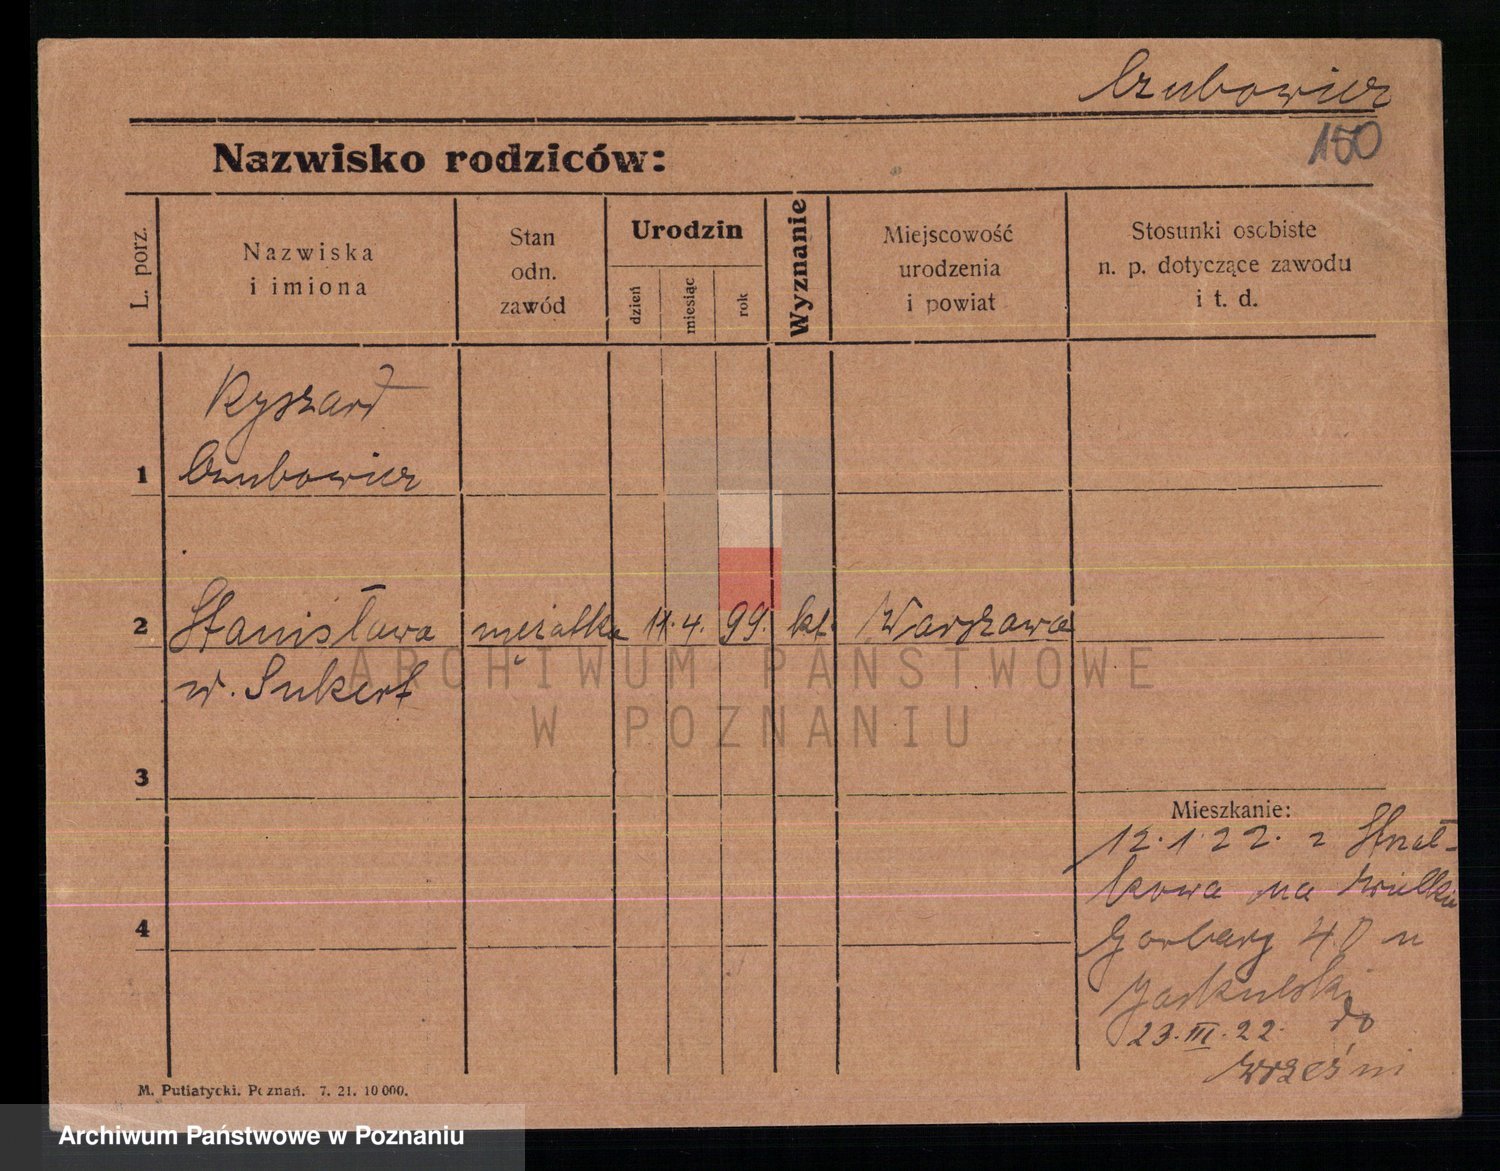 Czubowicz
150
Nazwisko rodziców:
L. porz.
Nazwiska
i imiona
Stan
odn.
zawód
Urodzin
dzień
miesiąc
rok
Wyznanie
Miejscowość
urodzenia
i powiat
Stosunki osobiste
n. p. dotyczące zawodu
i t. d.
Ryszard
1 Czubowicz
2 Stanisława mężatka 11. 4. 99. kt. Warszawa
w. Sukert
ARCHIWUM PAŃSTWOWE
W POZNANIU
3
Mieszkanie:
12. 1 22. z Strzał-
kowa na Wielkie
4
Garbary 40 u
Jaskulski
23. III. 22. do
Wrześni
M. Putiatycki. Poznań. 7. 21. 10 000.
Archiwum Państwowe w Poznaniu